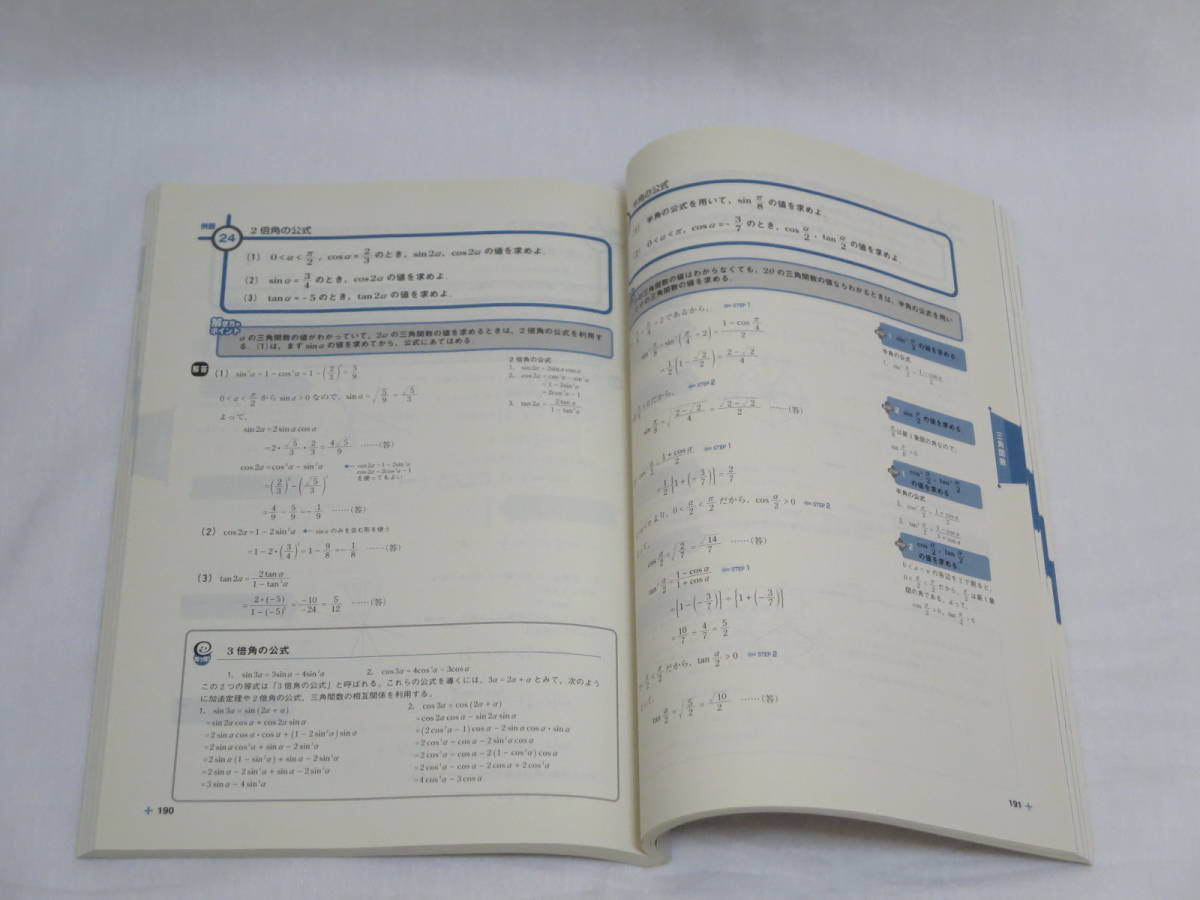 例題
24
2倍角の公式
(1) 0<α<π/2, cosα=2/3 のとき, sin2α, cos2α の値を求めよ.
(2) sinα=3/4 のとき, cos2α の値を求めよ.
(3) tanα=-5 のとき, tan2α の値を求めよ.
解き方の
ポイント
αの三角関数の値がわかっていて, 2αの三角関数の値を求めるときは, 2倍角の公式を利用す
る. (1)は, まず sinα の値を求めてから, 公式にあてはめる.
解答
(1) sin²α=1-cos²α=1-(2/3)²=5/9
0<α<π/2 から sinα>0 なので, sinα=√(5/9)=√5/3
よって,
sin2α=2sinαcosα
=2・√5/3・2/3=4√5/9 ……(答)
cos2α=cos²α-sin²α
=(2/3)²-(√5/3)²
=4/9-5/9=-1/9 ……(答)
cos2α=1-2sin²α
cos2α=2cos²α-1
を使ってもよい
2倍角の公式
1. sin2α=2sinαcosα
2. cos2α=cos²α-sin²α
=1-2sin²α
=2cos²α-1
3. tan2α=2tanα/(1-tan²α)
(2) cos2α=1-2sin²α ← sinαのみを含む形を使う
=1-2・(3/4)²=1-9/8=-1/8 ……(答)
(3) tan2α=2tanα/(1-tan²α)
=2・(-5)/(1-(-5)²)=-10/-24=5/12 ……(答)
3倍角の公式
1. sin3α=3sinα-4sin³α 2. cos3α=4cos³α-3cosα
この2つの等式は「3倍角の公式」と呼ばれる. これらの公式を導くには, 3α=2α+αとみて, 次のよう
に加法定理や2倍角の公式, 三角関数の相互関係を利用する.
1. sin3α=sin(2α+α)
=sin2αcosα+cos2αsinα
=2sinαcosα・cosα+(1-2sin²α)sinα
=2sinαcos²α+sinα-2sin³α
=2sinα(1-sin²α)+sinα-2sin³α
=2sinα-2sin³α+sinα-2sin³α
=3sinα-4sin³α
2. cos3α=cos(2α+α)
=cos2αcosα-sin2αsinα
=(2cos²α-1)cosα-2sinαcosα・sinα
=2cos³α-cosα-2sin²αcosα
=2cos³α-cosα-2(1-cos²α)cosα
=2cos³α-cosα-2cosα+2cos³α
=4cos³α-3cosα
190
半角の公式
半角の公式を用いて, sin π/8 の値を求めよ.
0<α<π, cosα=-3/7 のとき, cos α/2, tan α/2 の値を求めよ.
の三角関数の値はわからなくても, 2θの三角関数の値ならわかるときは, 半角の公式を用い
の三角関数の値を求める.
であるから, STEP 1
sin²π/8=sin²(π/4÷2)=(1-cos π/4)/2
=1/2(1-√2/2)=(2-√2)/4
だから, STEP 2
sin π/8=√((2-√2)/4)=√(2-√2)/2 ……(答)
cos²α/2=(1+cosα)/2 STEP 1
=1/2{1+(-3/7)}=2/7
より, 0<α/2<π/2 だから, cos α/2>0 STEP 2
cos α/2=√(2/7)=√14/7 ……(答)
tan²α/2=(1-cosα)/(1+cosα) STEP 1
={1-(-3/7)}÷{1+(-3/7)}
=10/7÷4/7=5/2
<π/2 だから, tan α/2>0 STEP 2
tan α/2=√(5/2)=√10/2 ……(答)
1 sin²π/8 の値を求める
半角の公式
1. sin²α/2=(1-cosα)/2
2 sin π/8 の値を求める
π/8は第1象限の角なので,
sin π/8>0
1 cos²α/2, tan²α/2
の値を求める
半角の公式
2. cos²α/2=(1+cosα)/2
3. tan²α/2=(1-cosα)/(1+cosα)
2 cos α/2, tan α/2
の値を求める
0<α<πの各辺を2で割ると,
0<α/2<π/2 だから, α/2は第1象
限の角である. よって,
cos α/2>0, tan α/2>0
三角関数
191